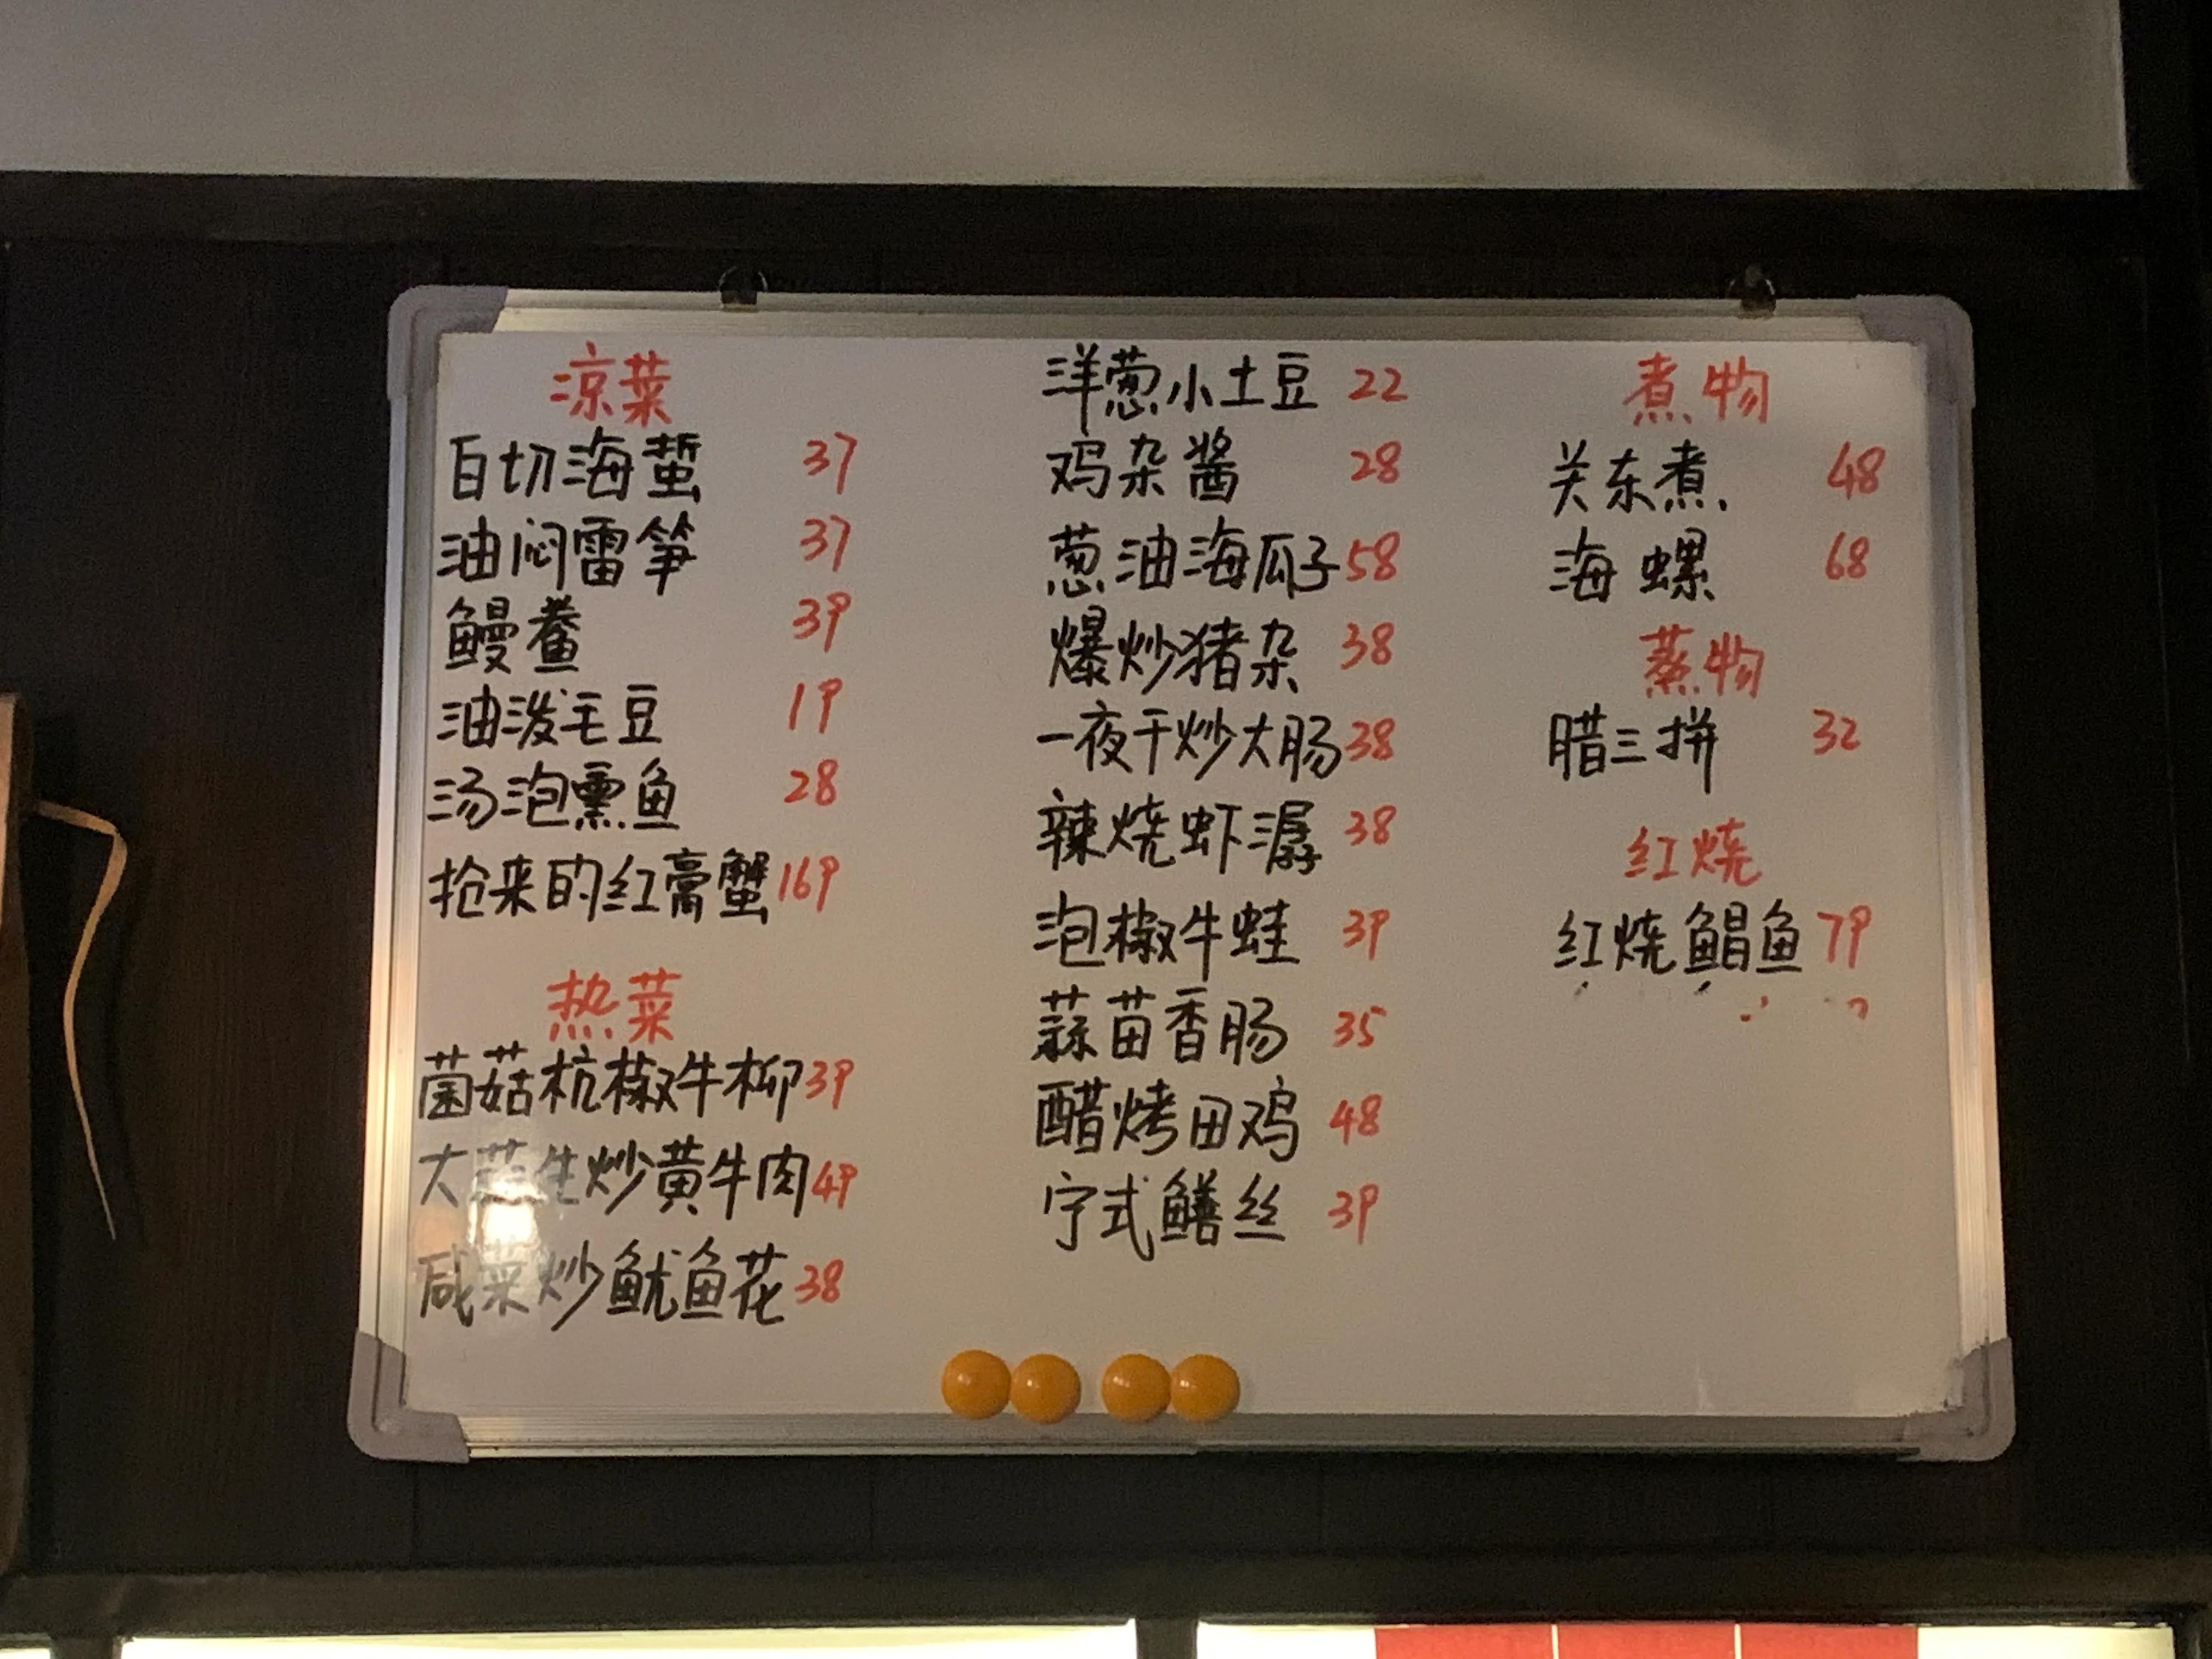 凉菜
白切海蜇 37
油闷雷笋 37
鳗鲞 39
油泼毛豆 19
汤泡熏鱼 28
抢来的红膏蟹 169
热菜
菌菇杭椒牛柳 39
大蒜生炒黄牛肉 49
咸菜炒鱿鱼花 38
洋葱小土豆 22
鸡杂酱 28
葱油海瓜子 58
爆炒猪杂 38
一夜干炒大肠 38
辣烧虾潺 38
泡椒牛蛙 39
蒜苗香肠 35
醋烤田鸡 48
宁式鳝丝 39
煮物
关东煮 48
海螺 68
蒸物
腊三拼 32
红烧
红烧鲳鱼 79